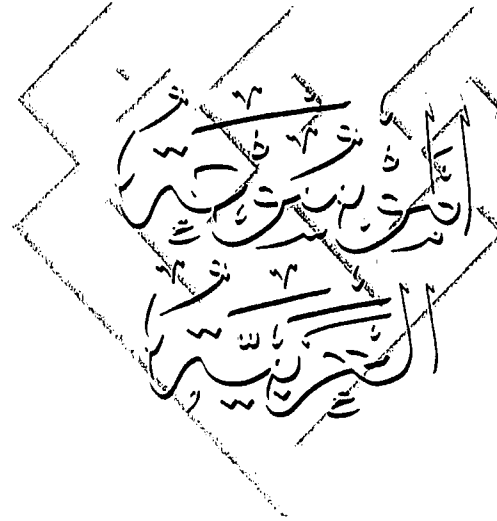 الموسوعة
العربية